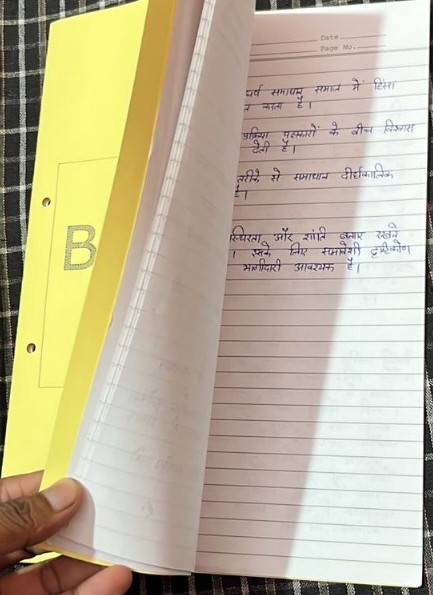 B
Date
Page No.
संघर्ष समाधान समाज में हिंसा
करता है।
प्रक्रिया पक्षकारों के बीच विश्वास
देती है।
तरीके से समाधान दीर्घकालिक
है।
स्थिरता और शांति बनाए रखने
। इसके लिए समावेशी दृष्टिकोण
भागीदारी आवश्यक है।